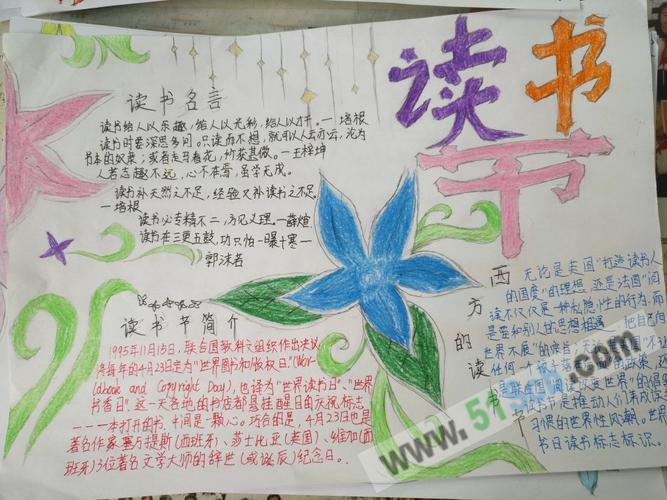 读书
节
读书名言
读书给人以乐趣，给人以光彩，给人以才干。一培根
读书时要深思多问。只读而不想，就可以人云亦云，沦为
书本的奴隶；或者走马看花，所获甚微。一王梓坤
人若志趣不远，心不在焉，虽学无成。
读书补天然之不足，经验又补读书之不足
一培根
读书必专精不二，方见义理一薛煊
读书在三更五鼓，功只怕一曝十寒一
郭沫若
读书节简介
1995年11月15日，联合国教科文组织作出决议
将每年的4月23日定为"世界图书和版权日。"(Wor-
Day)，也译为"世界读书日"、"世界
书香日"。这一天各地的书店都悬挂醒目的庆祝标志
一一一本打开的书，中间是一颗心。巧合的是，4月23日也是
著名作家塞万提斯(西班牙)、莎士比亚(英国)、维加(西
班牙)3位著名文学大师的辞世(或诞辰)纪念日。
西方的读书节
无论是美国"打造读书人
的国度"的理想，还是法国"阅
读不仅仅是一种私隐性的行为，而
是要和别人的思想相遇，把自己向
世界不展"的宗旨；
任何一个孩子落
是联合国"阅读改变世界"的倡
读书节是推动人们养成读
习惯的世界性风潮。世
节日读书标志标识。
www.51
.com